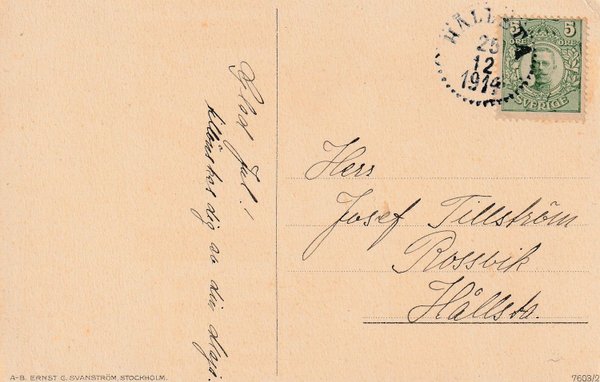 Glad Jul!
tillönskas dig av din
HÄLLSTA
25
12
1914
5 5
ÖRE ÖRE
SVERIGE
Herr
Josef Tillström
Rossvik
Hällsta.
A–B. ERNST G. SVANSTRÖM, STOCKHOLM.
7603/2